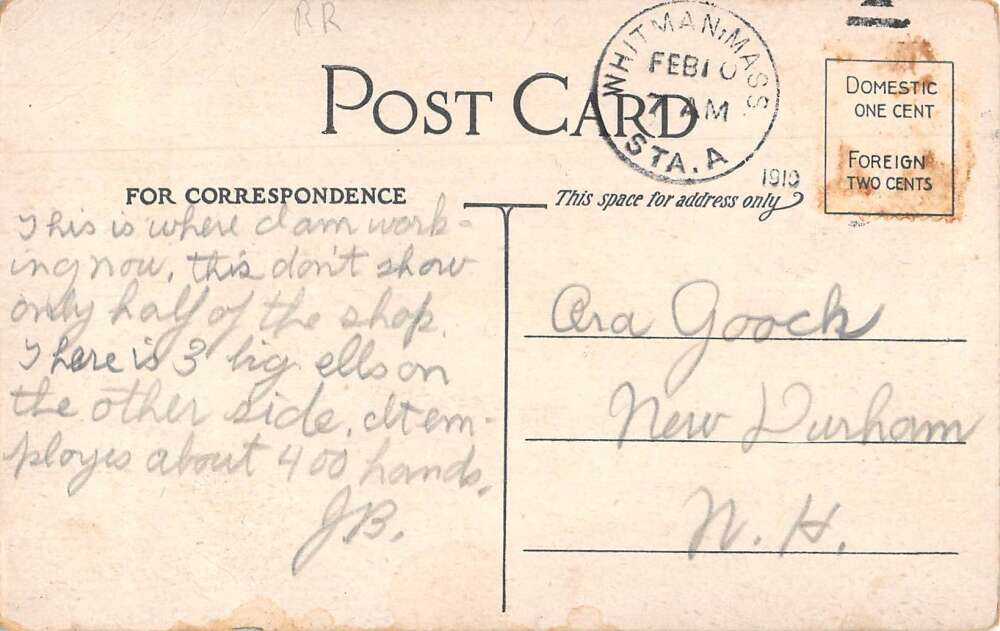 RR
WHITMAN, MASS.
FEB 10
7 AM
STA. A
1910
POST CARD
DOMESTIC
ONE CENT
FOREIGN
TWO CENTS
FOR CORRESPONDENCE
This space for address only
This is where I am work-
ing now, this don't show
only half of the shop.
There is 3 big ells on
the other side. It em-
ployes about 400 hands.
JB.
Ora Gooch
New Durham
N. H.